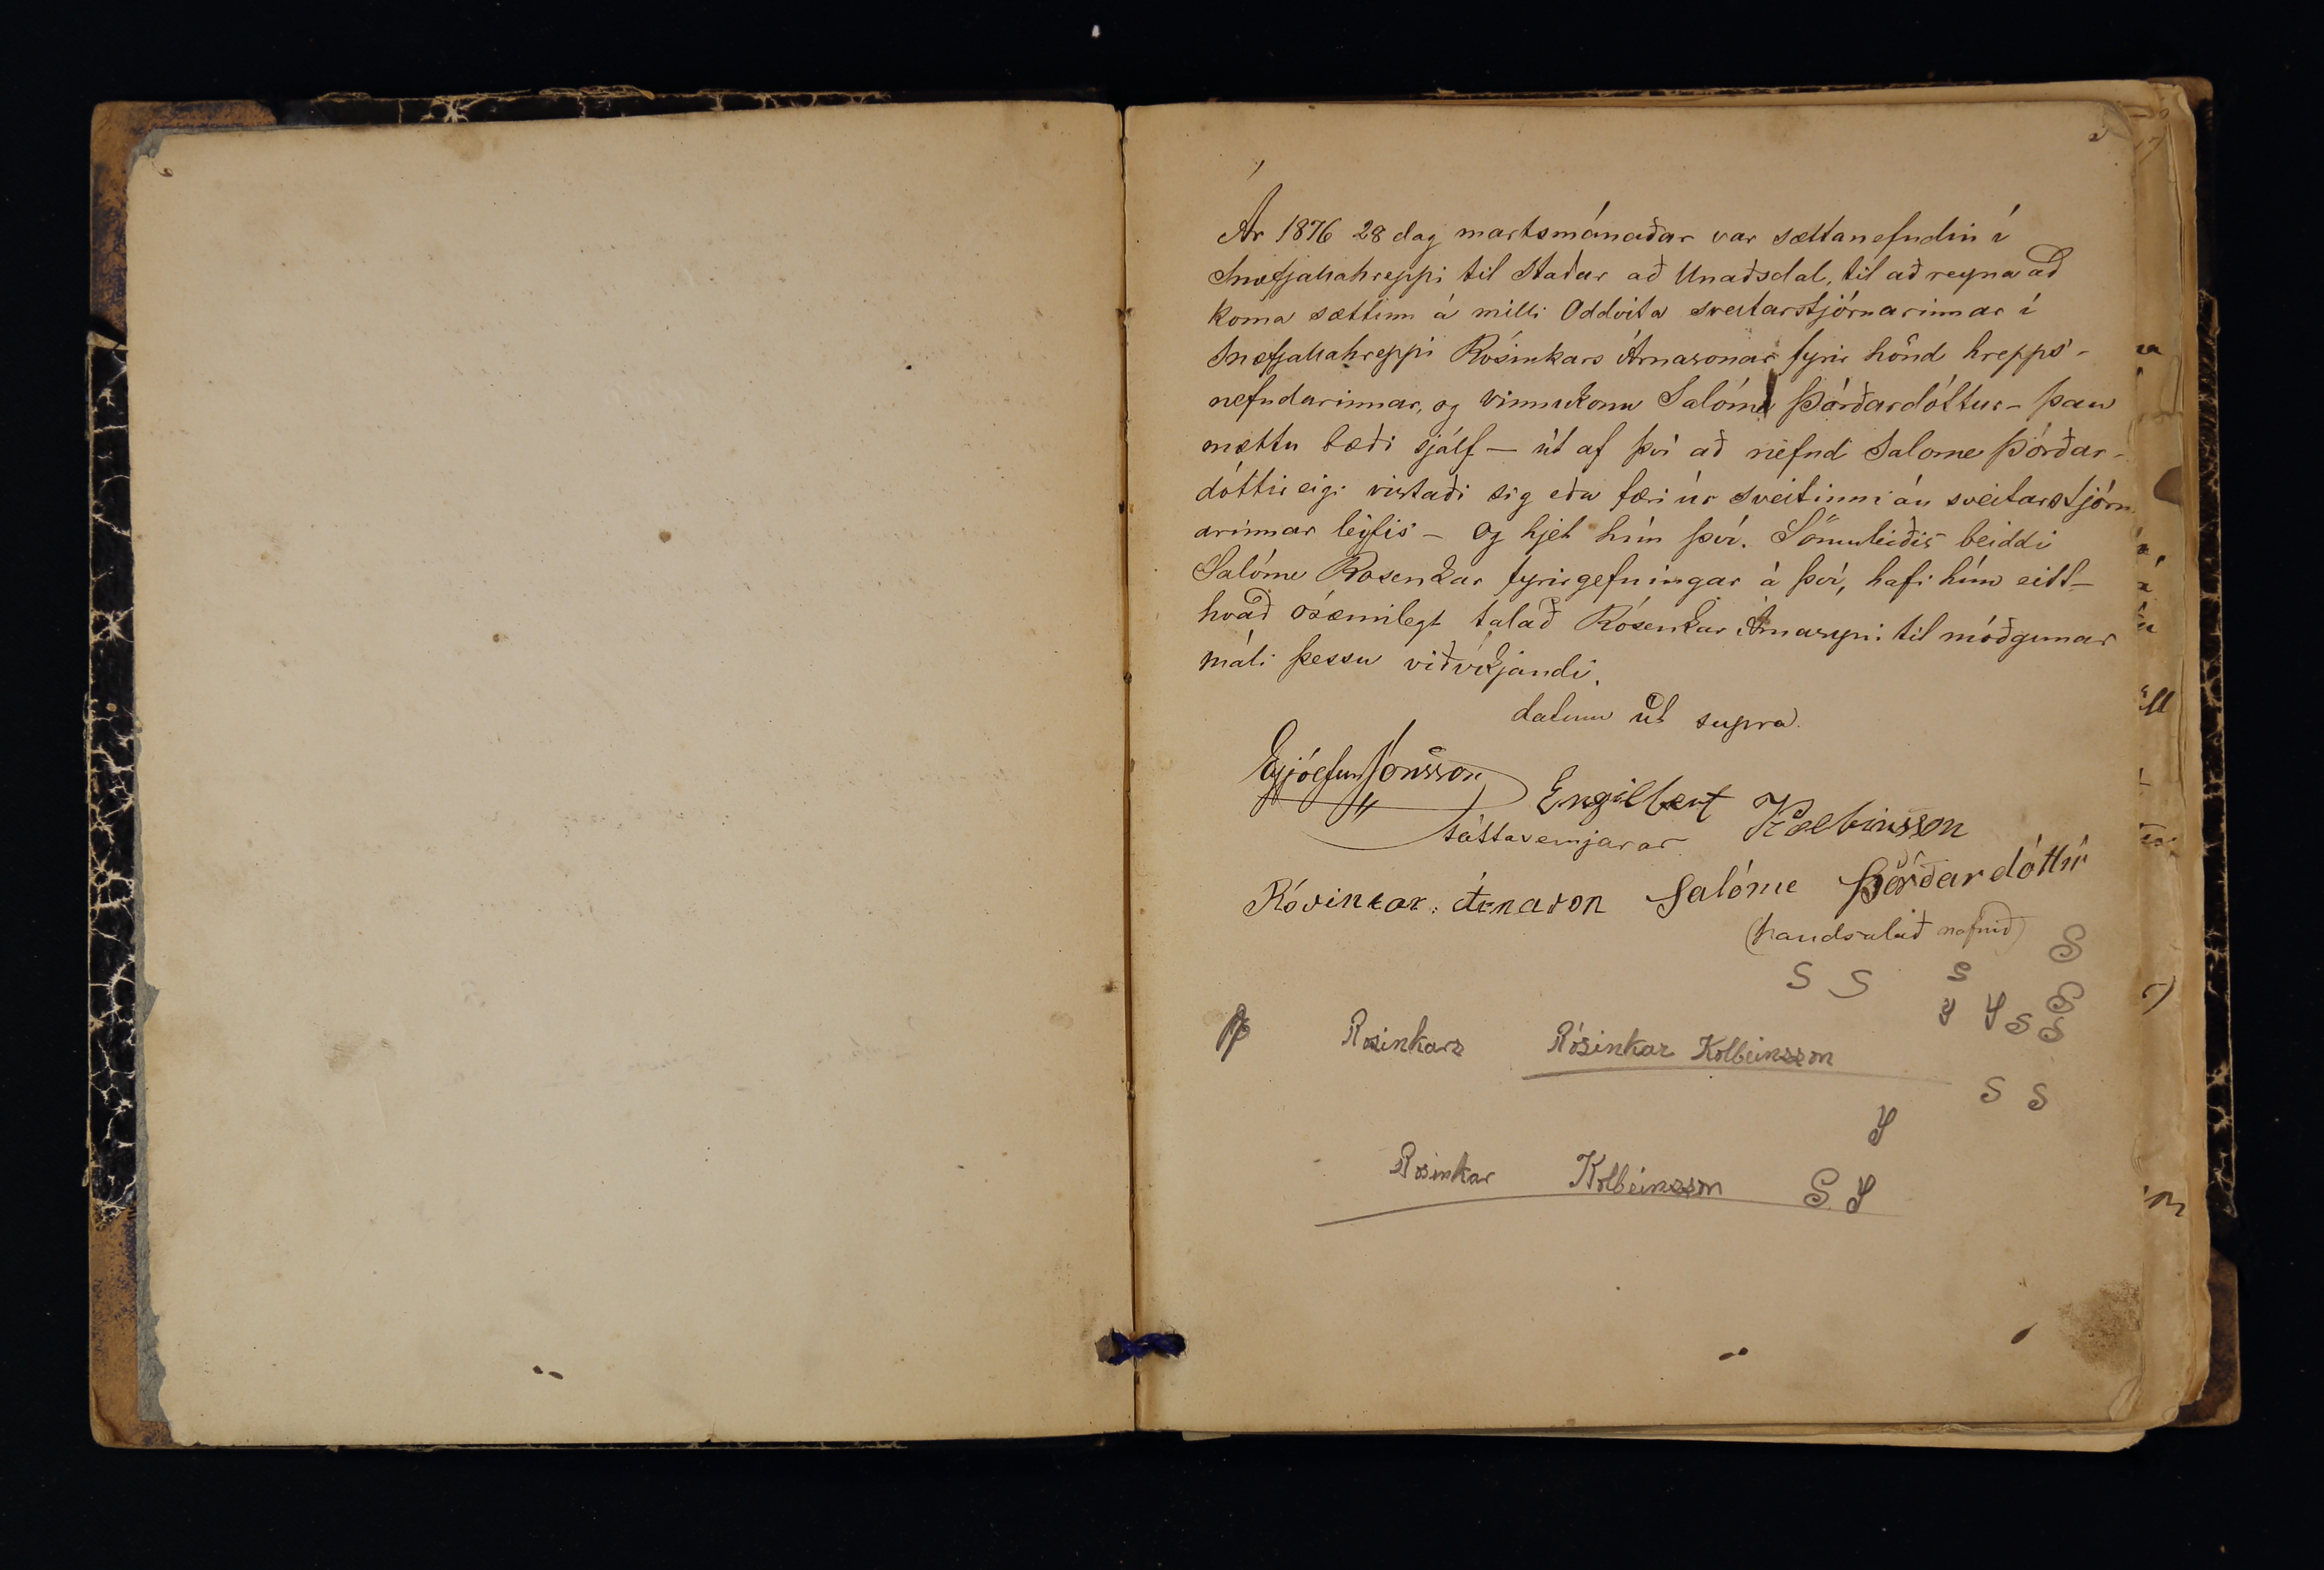 Ár 1876 28 dag martsmánaðar var sættanefndin í
Snæfjallahreppi til staðar að Unaðsdal, til að reyna að
koma sættinn á milli Oddvita sveitarstjórnarinnar í
Snæfjallahreppi Rósinkars Árnasonar fyrir hönd hrepps-
nefndarinnar, og vinnukonu Salóme Þórðardóttur - þau
mættu bæði sjálf - út af því að nefnd Salome Þórðar-
dóttir eigi vistaði sig eða færi úr sveitinni án sveitarstjórn
arinnar leyfis - og hjet hún því. Sömuleiðis beiddi
Salóme Rosenkar fyrirgefningar á því, hafi hún eitt-
hvað ósæmilegt talað Rósenkar Árnasyni til móðgunar
máli þessu viðvíkjandi.
datum út supra.
Eyjólfur Jónsson Engilbert Kolbeinsson
sáttasemjarar
Rósinkar Árnason Salóme Þórðardóttir
(handsalað nafnið)
S
S S S
S S S
S S
Rosinkars Rósinkar Kolbeinsson
S S
S
Rosinkar Kolbeinsson S S